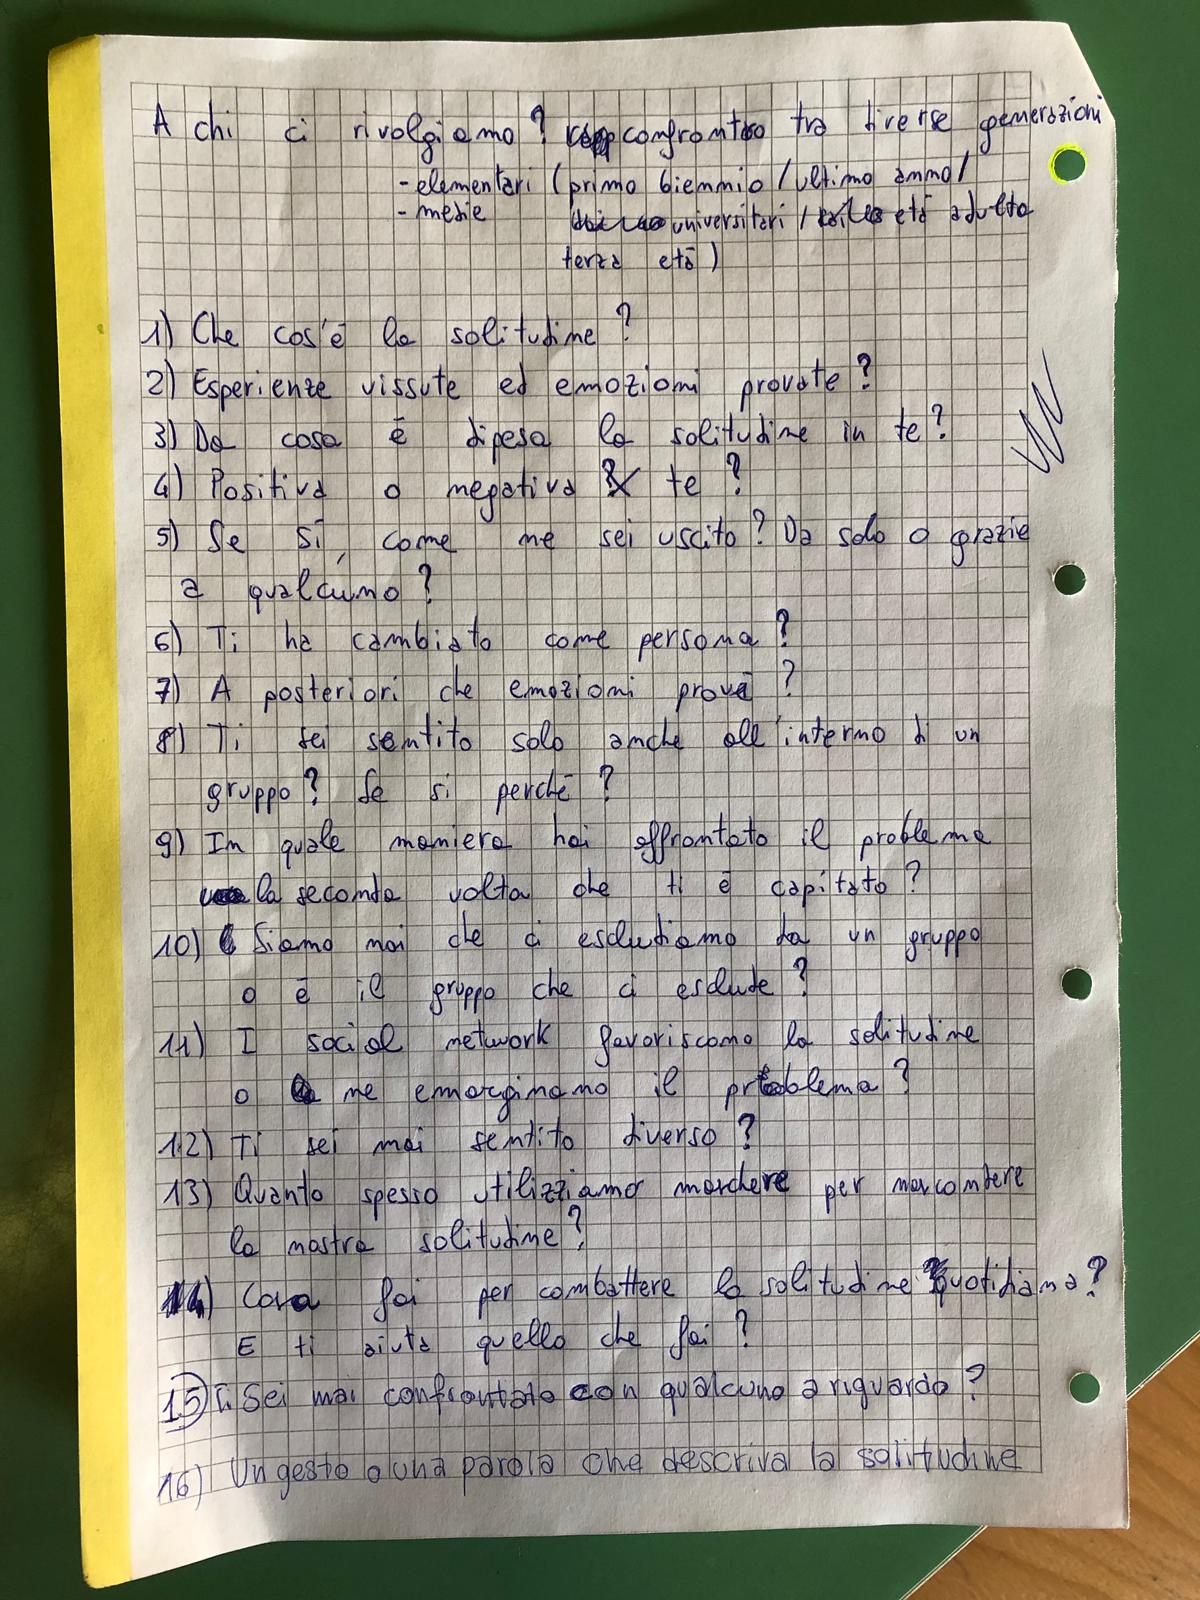 A chi ci rivolgiamo? confronto tra diverse generazioni
- elementari (primo biennio / ultimo anno /
- medie universitari / età adulta
terza età)
1) Che cos'è la solitudine?
2) Esperienze vissute ed emozioni provate?
3) Da cosa è dipesa la solitudine in te?
4) Positiva o negativa X te?
5) Se sì, come ne sei uscito? Da solo o grazie
a qualcuno?
6) Ti ha cambiato come persona?
7) A posteriori che emozioni provi?
8) Ti sei sentito solo anche all'interno di un
gruppo? Se si perché?
9) In quale maniera hai affrontato il problema
la seconda volta che ti è capitato?
10) Siamo noi che ci escludiamo da un gruppo
o è il gruppo che ci esclude?
11) I social network favoriscono la solitudine
o ne emarginano il problema?
12) Ti sei mai sentito diverso?
13) Quanto spesso utilizziamo per
la nostra solitudine?
14) Cosa fai per combattere la solitudine quotidiana?
E ti aiuta quello che fai?
15) Ti Sei mai confrontato con qualcuno a riguardo?
16) Un gesto o una parola che descriva la solitudine